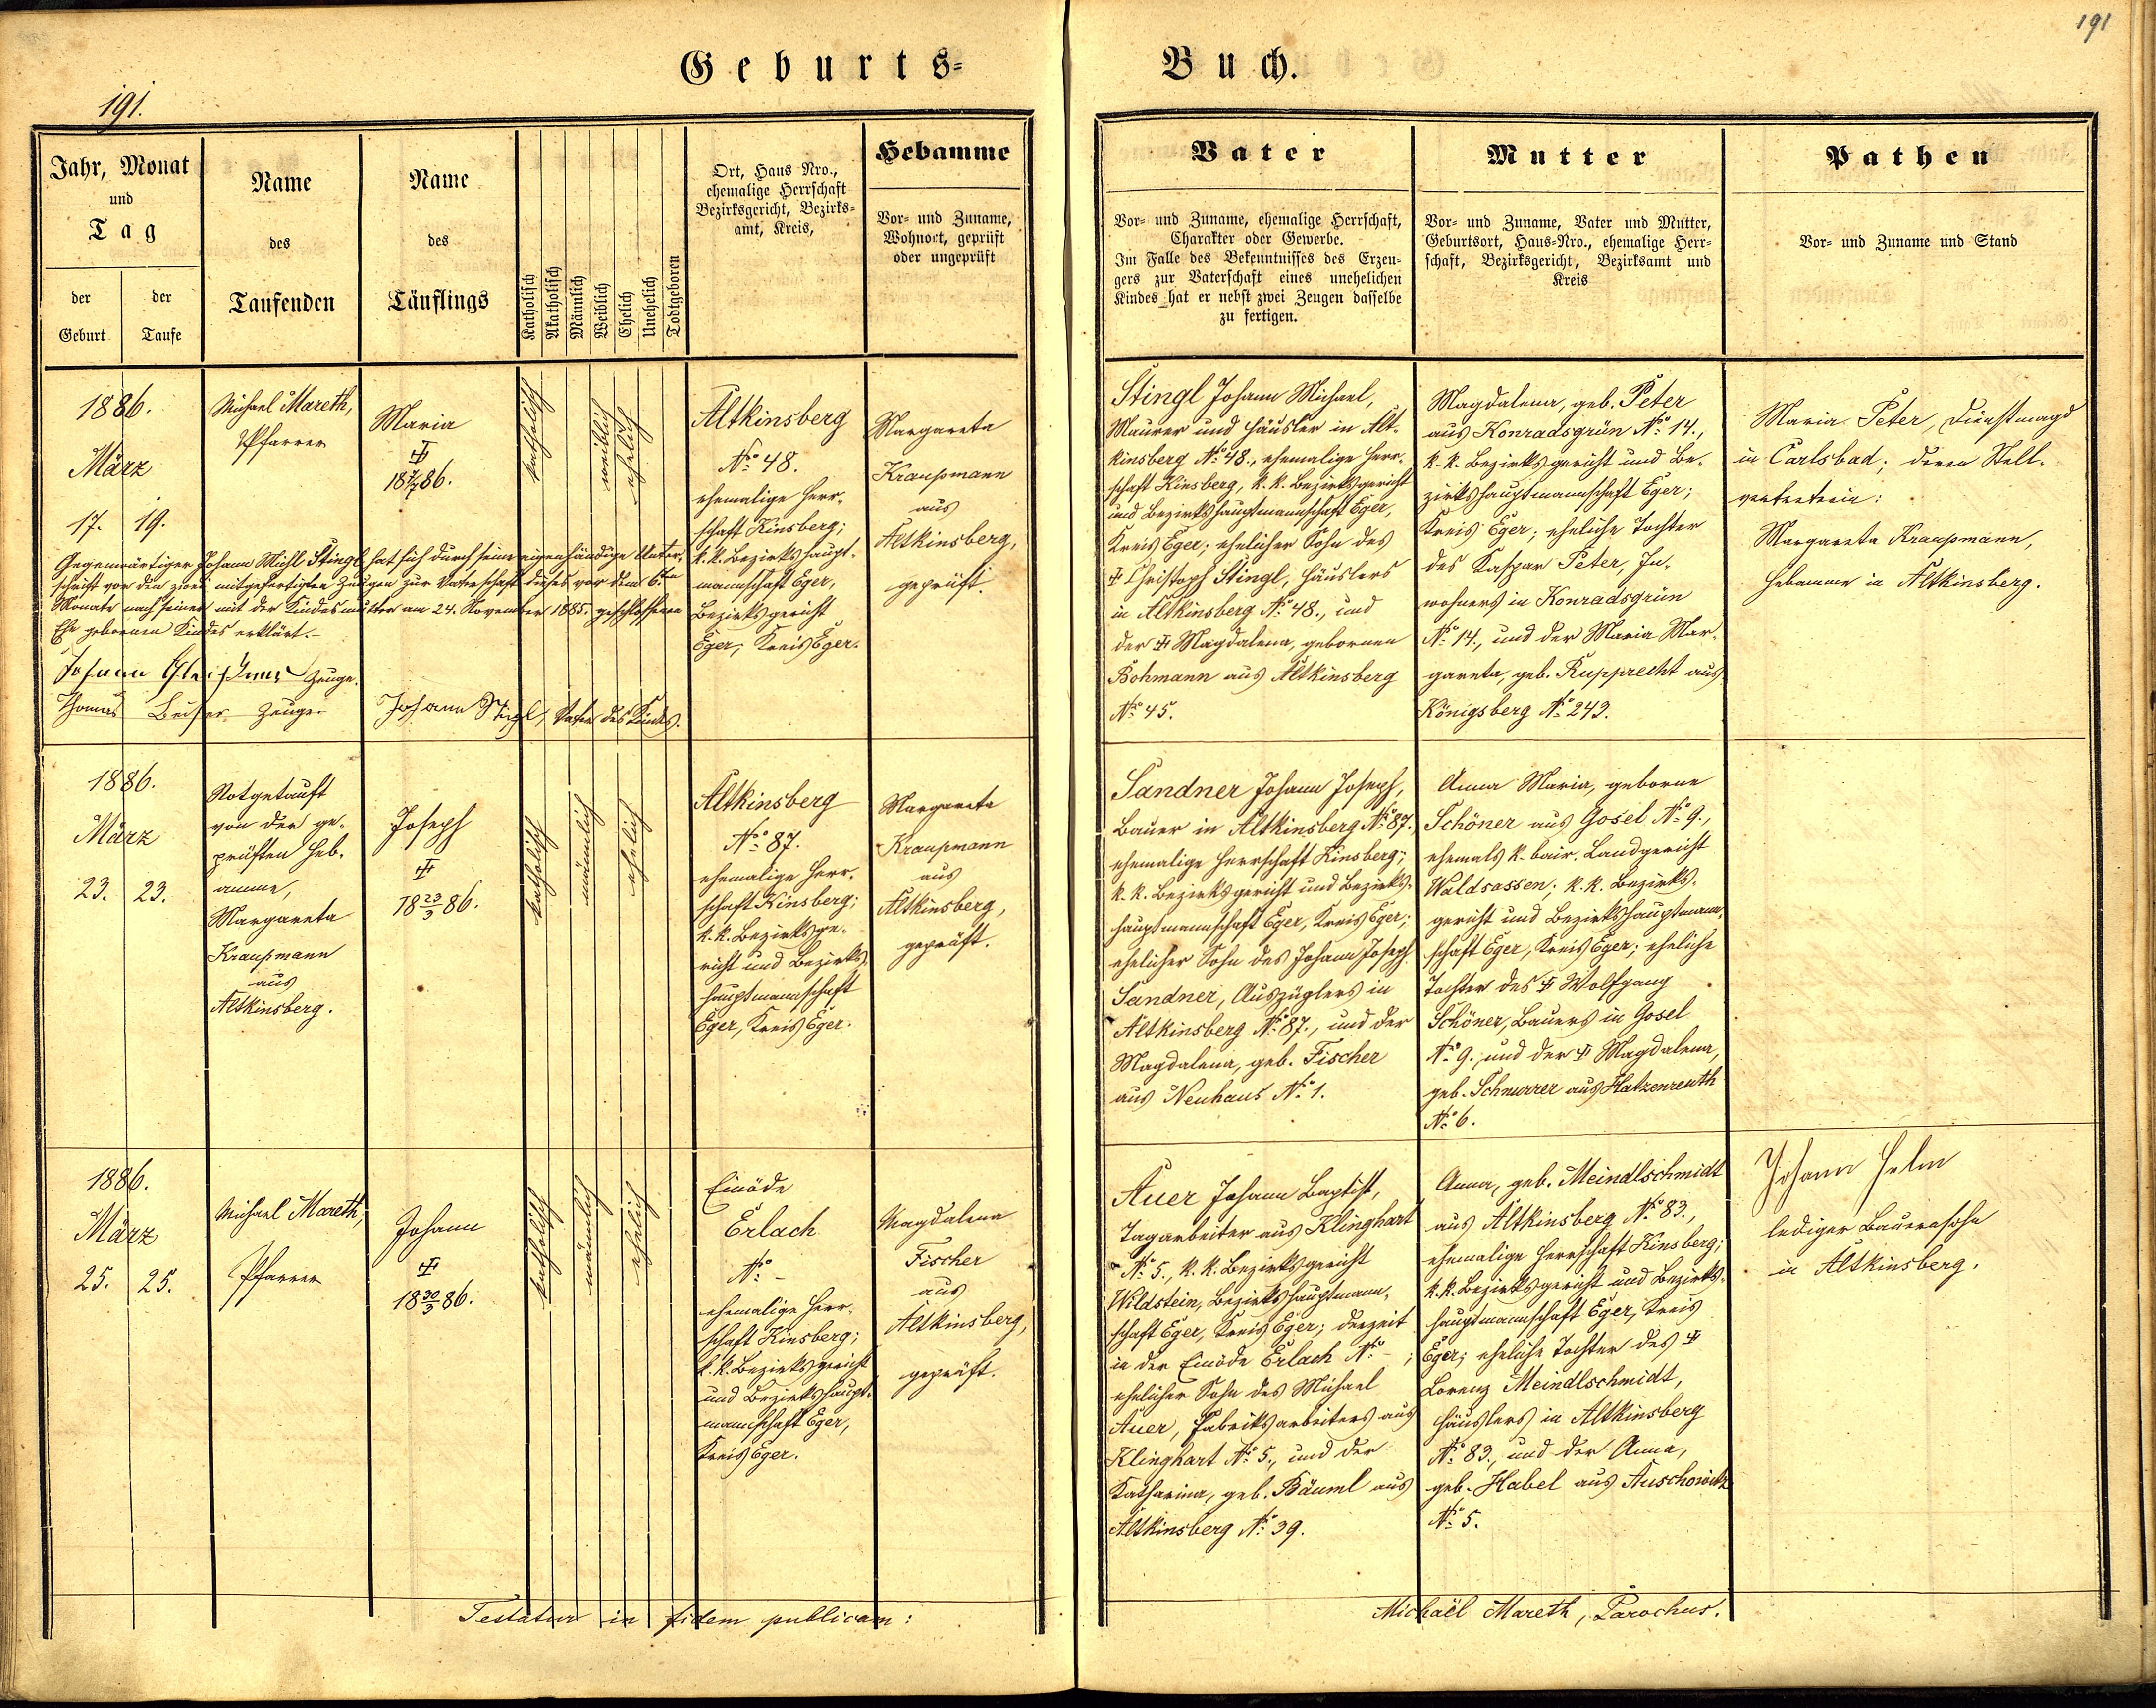 191
Geburts-
Buch.
191.
Jahr, Monat
und
Tag
der
Geburt
der
Taufe
Name
des
Taufenden
Name
des
Täuflings
Katholisch
Akatholisch
Männlich
Weiblich
Ehelich
Unehelich
Todtgeboren
Ort, Haus Nro.,
ehemalige Herrschaft
Bezirksgericht, Bezirks-
amt, Kreis,
Hebamme
Vor- und Zuname,
Wohnort, geprüft
oder ungeprüft
Vater
Vor- und Zuname, ehemalige Herrschaft,
Charakter oder Gewerbe.
Im Falle des Bekenntnisses des Erzeu-
gers zur Vaterschaft eines unehelichen
Kindes hat er nebst zwei Zeugen dasselbe
zu fertigen.
Mutter
Vor- und Zuname, Vater und Mutter,
Geburtsort, Haus-Nro., ehemalige Herr-
schaft, Bezirksgericht, Bezirksamt und
Kreis
Pathen
Vor- und Zuname und Stand
1886.
März
17. 19.
Michael Mareth,
Pfarrer
Maria
katholisch
weiblich
ehelich
Altkinsberg
No 48.
ehemalige Herr-
schaft Kinsberg;
k. k. Bezirkshaupt-
mannschaft Eger,
Bezirksgericht
Eger, Kreis Eger.
Margareta
Kraupmann
aus
Altkinsberg,
geprüft.
Gegenwärtiger Johann Michl Stingl hat sich durch seine eigenhändige Unter-
schrift vor den zwei mitgefertigten Zeugen zur Vaterschaft dieses vor dem 6ten
Monate nach seiner mit der Kindesmutter am 24. November 1885. geschlossenen
Ehe gebornen Kindes erklärt.-
Johann Zeuge.
Thomas Zeuge.
Johann Stingl, Vater des Kindes.
Stingl Johann Michael,
Maurer und Häusler in Alt-
kinsberg No 48., ehemalige Herr-
schaft Kinsberg, k. k. Bezirksgericht
und Bezirkshauptmannschaft Eger,
Kreis Eger; ehelicher Sohn des
Christoph Stingl, Häuslers
in Altkinsberg No 48., und
der Magdalena, gebornen
Bohmann aus Altkinsberg
No 45.
Magdalena, geb. Peter
aus Konradsgrün No 14.,
k. k. Bezirksgericht und Be-
zirkshauptmannschaft Eger;
Kreis Eger; eheliche Tochter
des Kaspar Peter, In-
wohners in Konradsgrün
No 14., und der Maria Mar-
gareta, geb. Rupprecht aus
Königsberg No 243.
Maria Peter, Dienstmagd
in Carlsbad; deren Stell-
vertreterin:
Margareta Kraupmann,
Hebamme in Altkinsberg.
1886.
März
23. 23.
Notgetauft
von der ge-
prüften Heb-
amme,
Margareta
Kraupmann
aus
Altkinsberg.
Joseph
18 23/3 86.
katholisch
männlich
ehelich
Altkinsberg
No 87.
ehemalige Herr-
schaft Kinsberg;
k. k. Bezirksge-
richt und Bezirks-
hauptmannschaft
Eger, Kreis Eger.
Margareta
Kraupmann
aus
Altkinsberg,
geprüft.
Sandner Johann Joseph,
Bauer in Altkinsberg No 87.,
ehemalige Herrschaft Kinsberg;
k. k. Bezirksgericht und Bezirks-
hauptmannschaft Eger, Kreis Eger;
ehelicher Sohn des Johann Joseph
Sandner, Auszüglers in
Altkinsberg No 87., und der
Magdalena, geb. Fischer
aus Neuhaus No 1.
Anna Maria, geborne
Schöner aus Gosel No 9.,
ehemals k. bair. Landgericht
Waldsassen; k. k. Bezirks-
gericht und Bezirkshauptmann-
schaft Eger, Kreis Eger; eheliche
Tochter des Wolfgang
Schöner, Bauers in Gosel
No 9., und der Magdalena,
geb. Schnurrer aus Hatzenreuth
No 6.
1886.
März
25. 25.
Michael Mareth,
Pfarrer
Johann
18 30/3 86.
katholisch
männlich
ehelich
Einöde
Erlach
No -
ehemalige Herr-
schaft Kinsberg;
k. k. Bezirksgericht
und Bezirkshaupt-
mannschaft Eger,
Kreis Eger.
Magdalena
Fischer
aus
Altkinsberg,
geprüft.
Auer Johann Baptist,
Tagarbeiter aus Klinghart
No 5., k. k. Bezirksgericht
Wildstein, Bezirkshauptmann-
schaft Eger, Kreis Eger; derzeit
in der Einöde Erlach No - ;
ehelicher Sohn des Michael
Auer, Fabriksarbeiters aus
Klinghart No 5., und der
Katharina, geb. Bäuml aus
Altkinsberg No 39.
Anna, geb. Meindlschmidt
aus Altkinsberg No 83.,
ehemalige Herrschaft Kinsberg;
k. k. Bezirksgericht und Bezirks-
hauptmannschaft Eger, Kreis
Eger; eheliche Tochter des
Lorenz Meindlschmidt,
Häuslers in Altkinsberg
No 83., und der Anna,
geb. Habel aus Auschowitz
No 5.
Johann Helm
lediger Bauerssohn
in Altkinsberg.
Testatur in fidem publicam:
Michaël Mareth, Parochus.